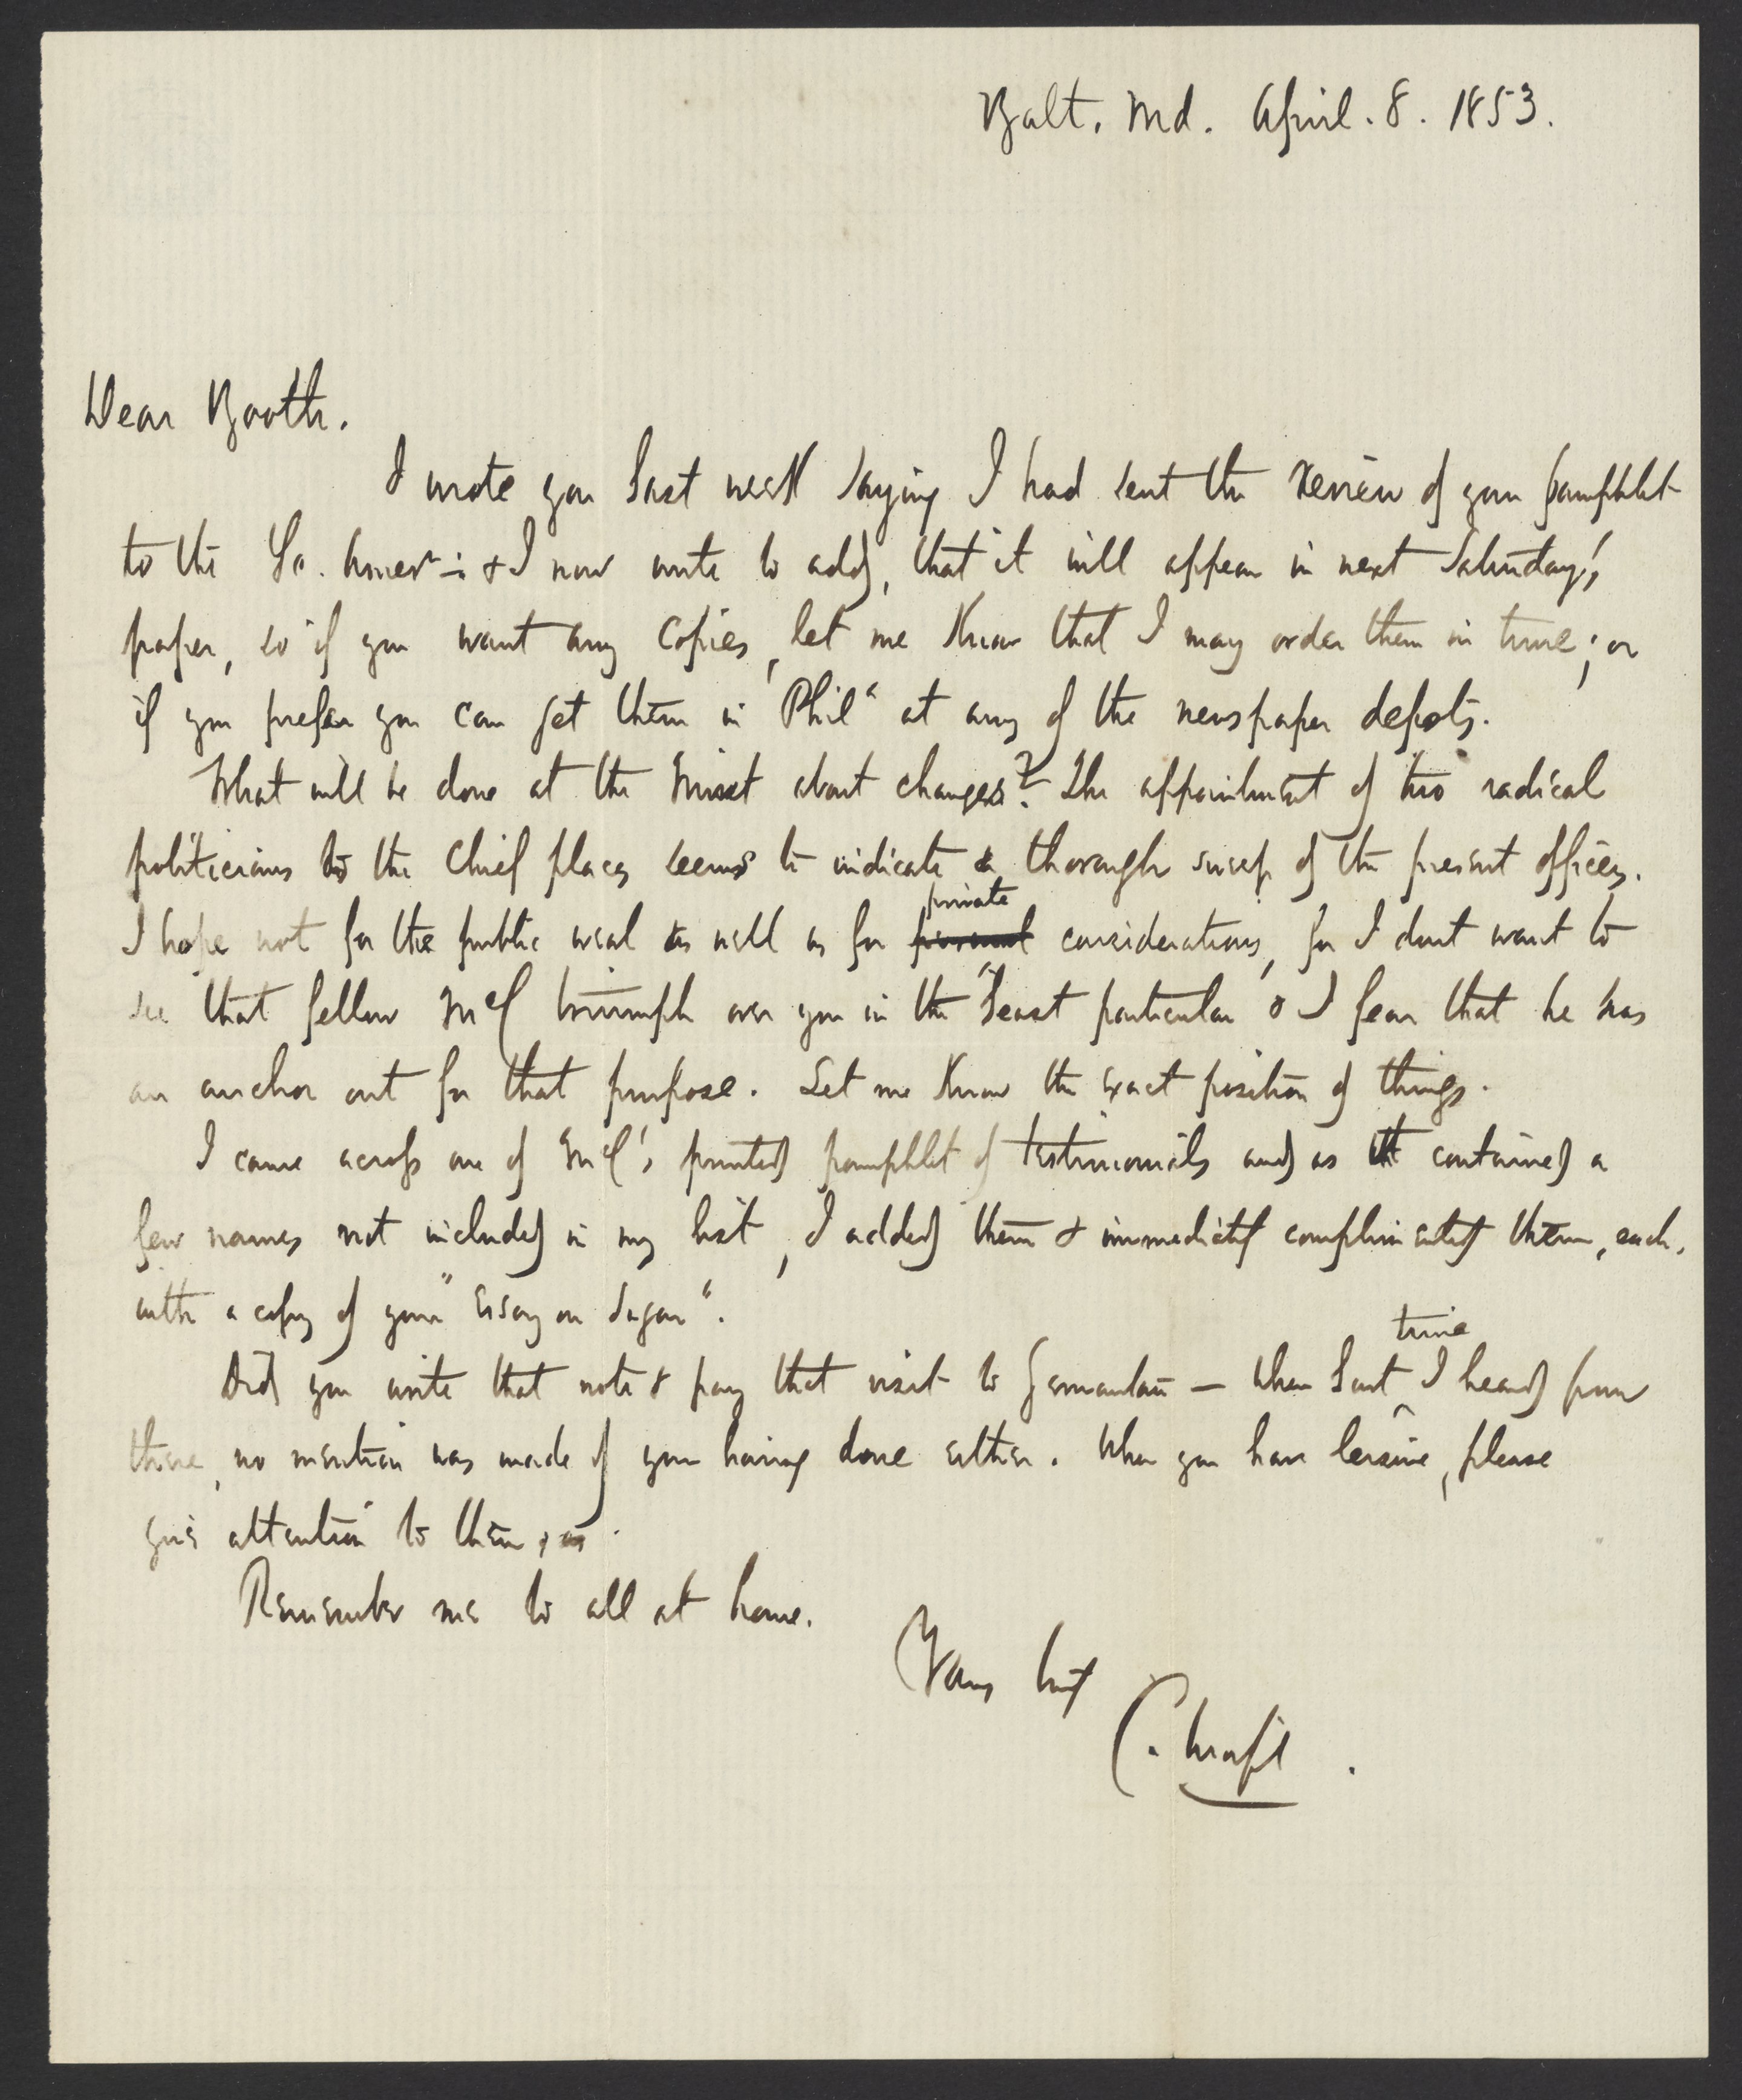 Balt. Md. April. 8. 1853.
Dear Booth.
I wrote you last week saying I had sent the review of your pamphlet
to the Sc. Amer - & I now write to add, that it will appear in next Saturday's
paper, so if you want any copies, let me know that I may order them in time; or
if you prefer you can get them in Phila at any of the newspaper depots.
What will be done at the Mint about changes? The appointment of two radical
politicians to the chief places seems to indicate a thorough sweep of the present officers.
private
I hope not for the public weal as well as for personal considerations, for I dont want to
see that fellow McC triumph over you in the least particular & I fear that he has
an anchor out for that purpose. Let me know the exact position of things.
I came across one of McC's printed pamphlet of testimonials and as it contained a
few names not included in my list, I added them & immediately complimented them, each,
with a copy of your "Essay on Sugar".
time
Did you write that note & pay that visit to Germantown - When last I heard from
there, no mention was made of your having done either. When you have leisure, please
give attention to them.
Remember me to all at home.
Yours truly
C. Morfit.